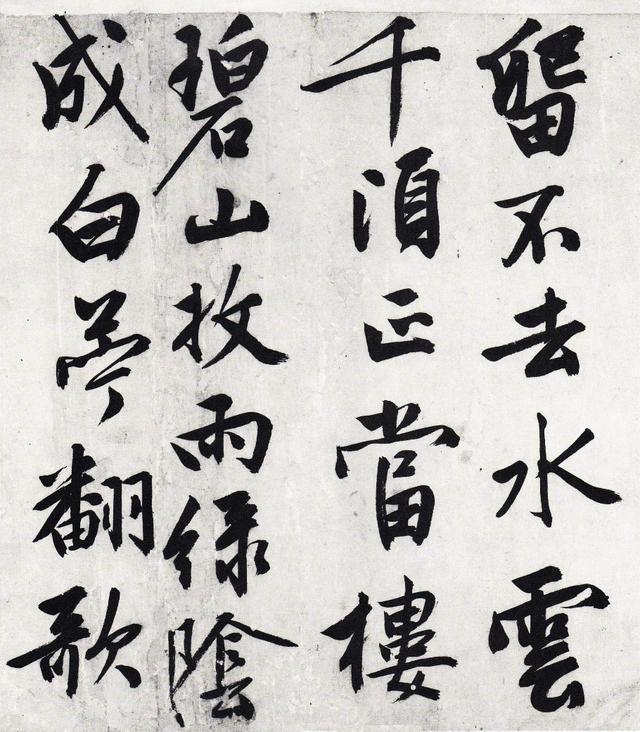 留不去水雲
千頃正當樓
碧山放雨綠陰
成白苧翻歌